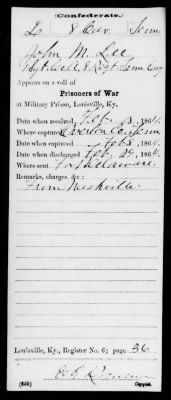 (Confederate.)
L 8 Cav Tenn.
John M. Lee
Sgt. Co. L, 8 Regt Tenn Cav
Appears on a roll of
Prisoners of War
at Military Prison, Louisville, Ky.
Date when received, Feb. 18, 1864.
Where captured, Overton Co Tenn
When captured, Feb 8, 1864.
Date when discharged Feb. 29, 1864.
Where sent Fort Delaware.
Remarks, charges, &c:
From Nashville.
Louisville, Ky., Register No. 6; page 36
(639) Copyist.